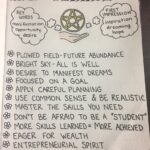 KEY WORDS
Manifestation
Opportunity
desire
FIRST IMPRESSION
inspiration
dreaming
hope
PLOWED FIELD-FUTURE ABUNDANCE
BRIGHT SKY-ALL IS WELL
DESIRE TO MANIFEST DREAMS
FOCUSED ON A GOAL
APPLY CAREFUL PLANNING
USE COMMON SENSE & BE REALISTIC
MASTER THE SKILLS YOU NEED
DON'T BE AFRAID TO BE A "STUDENT"
MORE SKILLS LEARNED = MORE ACHIEVED
EAGER FOR WEALTH
ENTREPRENEURIAL SPIRIT